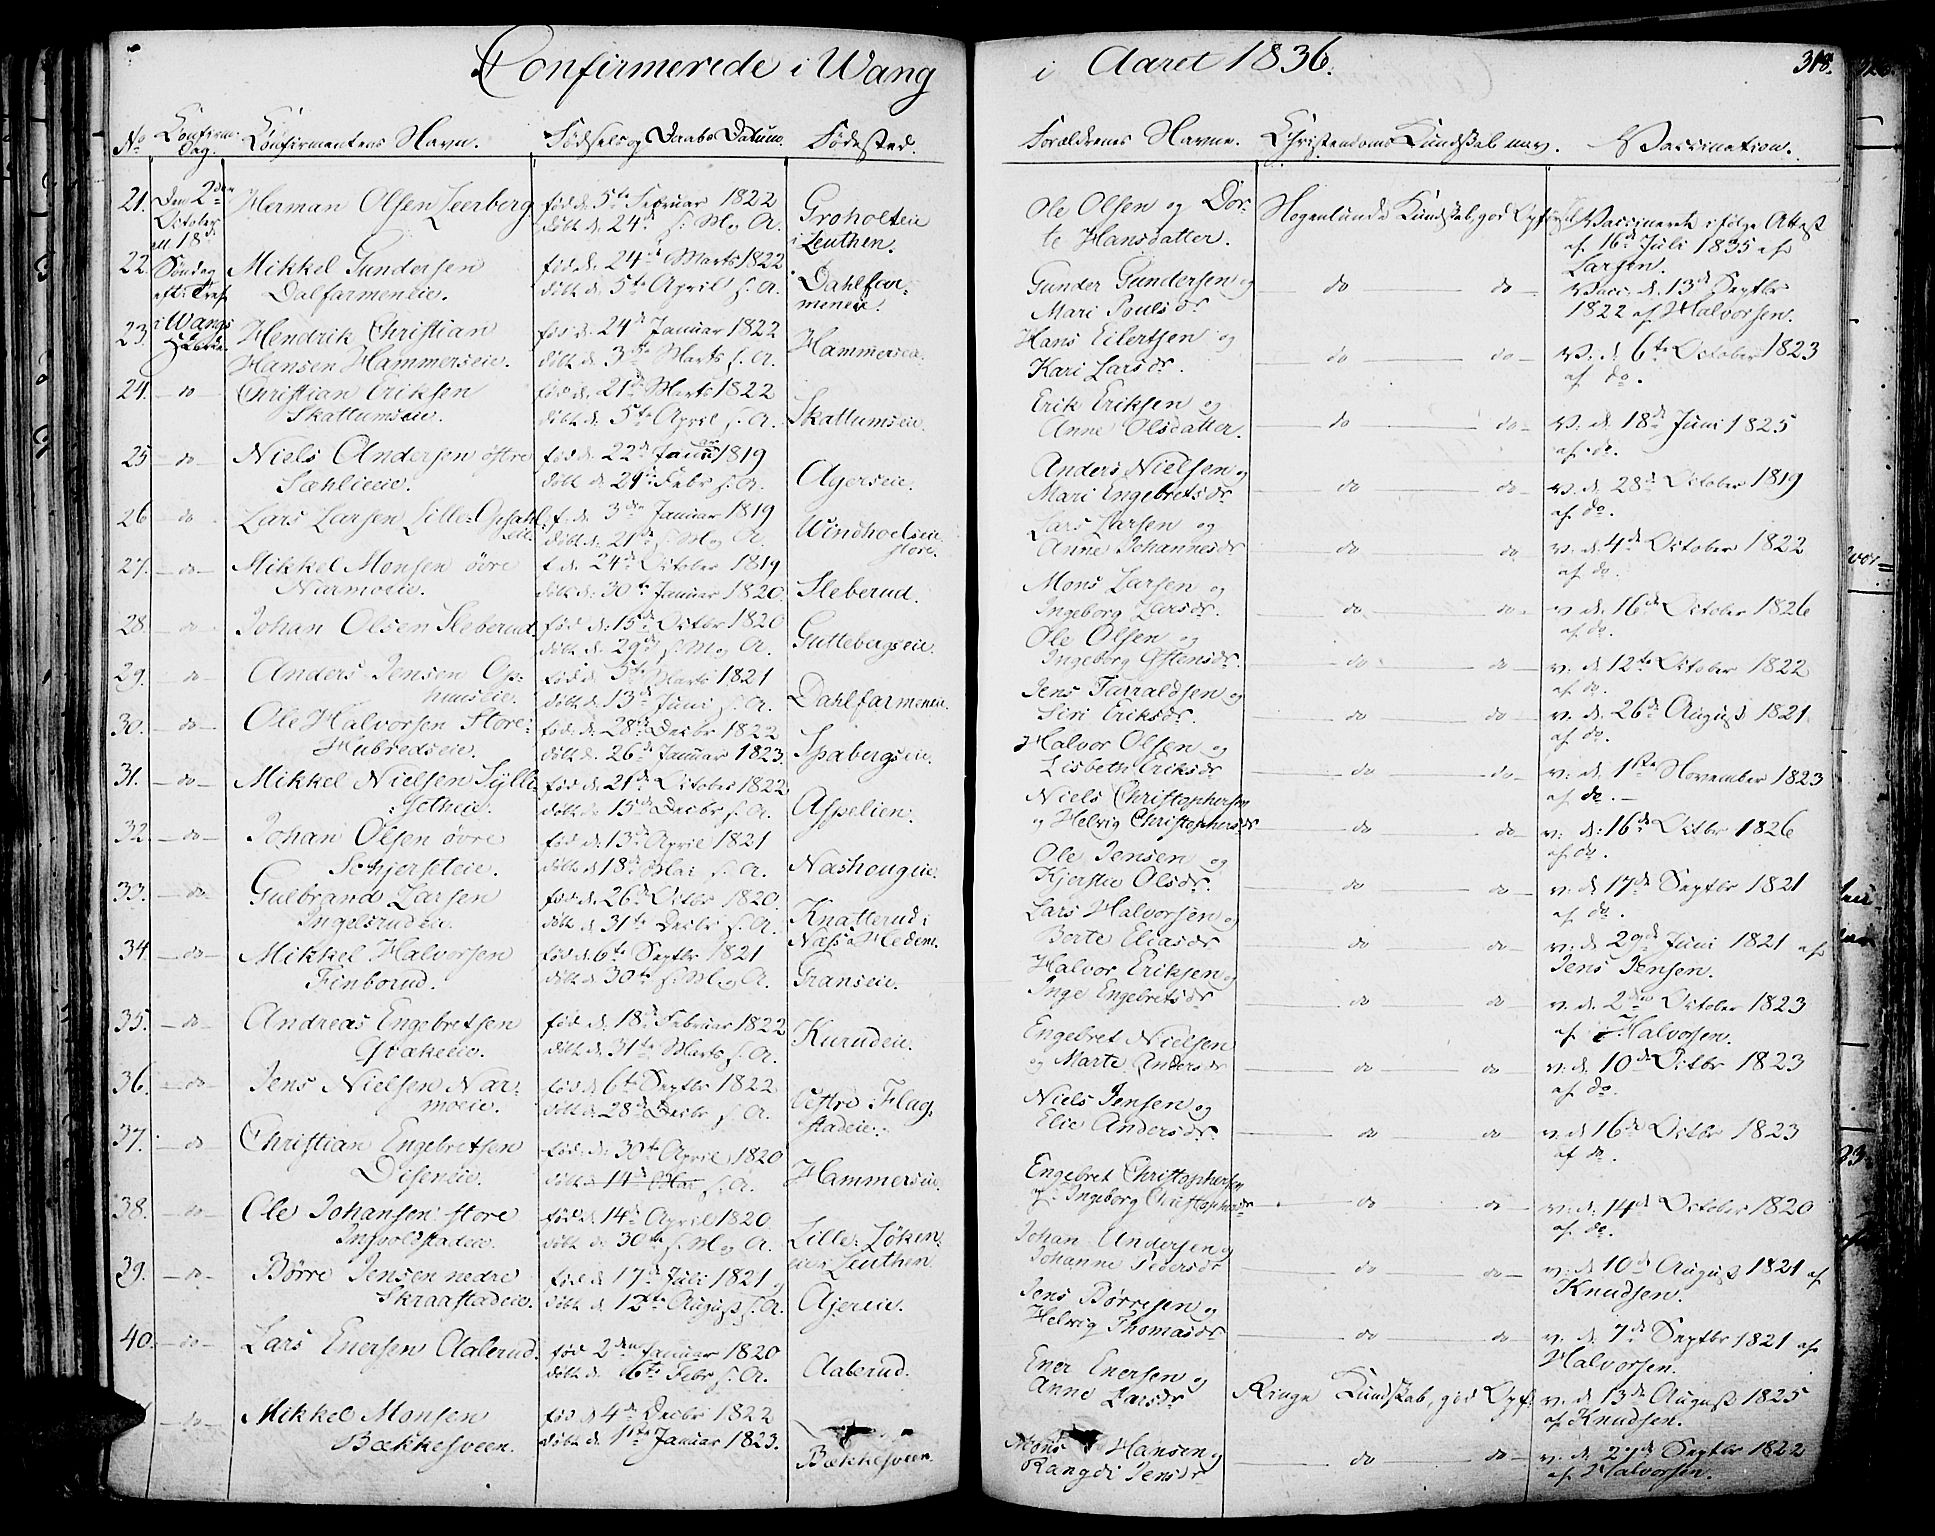 Confirmerede i Wang i Aaret 1836. 318.
No Confirm: Dag. Confirmentens Navn. Fødsels og Daabs Datum. Fødested. Forældrenes Navne. Christendoms Kundskab m.v. Vaccination.
21. Den 2den October Herman Olsen Leerberg
fød d. 5te Februar 1822
døbt d. 24d s. M. og A.
Groholteie i Leuthen.
Ole Olsen og Dorte Hansdatter.
Nogenlunde Kundskab, god Opførsel
Vaccineret ifølge Attest
af 16d Juli 1835 af
Larsen.
22. Søndag eft: Tref. Mikkel Gundersen
Dalfarmeneie.
fød d. 24d Marts 1822
døbt d. 5te April s. A.
Dahlfarmeneie.
Gunder Gundersen og
Mari Poulsdr
do do
Vacc. d. 13d Septbr
1822 af Halvorsen.
23. i Wangs Hendrik Christian
Hansen Hammerseie.
fød d. 24d Januar 1822
døbt d. 3die Marts s. A.
Hammerseie.
Hans Eilertsen og
Kari Larsdr.
do do
V. d. 6te October 1823
af do.
24. do Christian Eriksen
Skattumseie.
fød d. 21d Marts 1822
døbt d. 5te April s. A.
Skattumseie.
Erik Eriksen og
Anne Olsdatter.
do do
V. d. 18d Juni 1825
af do.
25 do Niels Andersen østre
Sæhlieeie.
fød d. 22d Januar 1819
døbt d. 24d Febr s. A.
Agerseie.
Anders Nielsen og
Mari Engebretsdr
do do
V. d. 28d October 1819
af do.
26 do Lars Larsen Lille-Opsahleie
f. d. 3die Januar 1819
døbt d. 21d s. M. og A.
Windhoelseie store.
Lars Larsen og
Anne Johannesdr
do do
v. d. 4d October 1822
af do.
27. do Mikkel Monsen øvre
Narmoeie.
f. d. 24d October 1819
døbt d. 30te Januar 1820.
Sleberud.
Mons Larsen og
Ingeborg Larsdr.
do do
v. d. 16d October 1826
af do.
28. do Johan Olsen Sleberud.
fød d. 15d Octbr 1820
døbt d. 29d s. M. og A.
Guttebergseie.
Ole Olsen og
Ingeborg Østensdr.
do do
v. d. 12te October 1822
af do.
29. do Anders Jensen Ophuuseie.
fød d. 5te Marts 1821
døbt d. 13d Juni s. A.
Dahlfarmeneie.
Jens Tarraldsen og
Siri Eriksdr.
do do
v. d. 26d August 1821
af do.
30. do Ole Halvorsen Store-Hubredseie.
fød d. 28d Decbr 1822
døbt d. 26d Januar 1823.
Spabergseie.
Halvor Olsen og
Lisbeth Eriksdr
do do
v. d. 1ste November 1823
af do.
31. do Mikkel Nielsen
fød d. 21d October 1822
døbt d. 15d Decbr s. A.
Aspelien.
Niels Christophersen
og Helvig Christophersdr
do do
v. d. 16d Octbr 1826
af do.
32. do Johan Olsen øvre
Schjersteie.
fød d. 13d April 1821
døbt d. 18d Mai s. A.
Nashougeie.
Ole Jensen og
Kjerstie Olsdr.
do do
v. d. 17d Septbr 1821
af do.
33. do Gulbrand Larsen
Ingelsrudeie.
fød d. 26d Octbr 1820.
døbt d. 31te Decbr s. A.
Knatterud i
Næs Hedem.
Lars Halvorsen og
Berte Eliasdr
do do
v. d. 29d Juni 1821 af
Jens Jensen.
34. do Mikkel Halvorsen
Finborud.
fød d. 6te Septbr 1821
døbt d. 30te s. M. og A.
Granseie.
Halvor Eriksen og
Inge Engebretsdr
do do
v. d. 2den October 1823
af Halvorsen.
35. do Andreas Engebretsen
Qvakeeie.
fød d. 18d Februar 1822
døbt d. 31te Marts s. A.
Kurudeie.
Engebret Nielsen
og Marte Andersdr
do do
v. d. 10d Octbr 1823
af do.
36. do Jens Nielsen Narmoeie.
fød d. 6te Septbr 1822
døbt d. 28d Decbr s. A.
Østre Flagstadeie.
Niels Jensen og
Elie Andersdr.
do do
v. d. 16d Octbr 1823
af do.
37. do Christian Engebretsen
Diseneie.
fød d. 30te April 1820
døbt d. 14d Mai s. A.
Hammerseie.
Engebret Christophersen
og Ingeborg Christophersdr
do do
v. d. 14d October 1820
af do.
38. do Ole Johansen store
Ingvoldstadeie.
fød d. 14d April 1820
døbt d. 30te s. M. og A.
Lille-Løkeneie i Leuthen
Johan Andersen og
Johanne Pedersdr
do do
v. d. 10d August 1821 af
Knudsen.
39. do Børre Jensen nedre
Skraastadeie.
fød d. 17d Juli 1821
døbt d. 12te August s. A.
Ajereie.
Jens Børresen og
Helvig Thomasdr
do do
v. d. 7d Septbr 1821 af
Halvorsen.
40. do Lars Enersen Aalerud.
fød 2den Januar 1820
døbt d. 16te Febr s. A.
Aalerud.
Ener Enersen og
Anne Larsdr
Ringe Kundskab, god Opf:
v. d. 13d August 1825
af Knudsen.
do Mikkel Monsen
Bækkesveen.
fød d. 4d Decbr 1822
døbt d. 1ste Januar 1823.
Bækkesveen.
Mons Hansen og
Rangdi Jensdr
do do
v. d. 27d Septbr 1822
af Halvorsen.